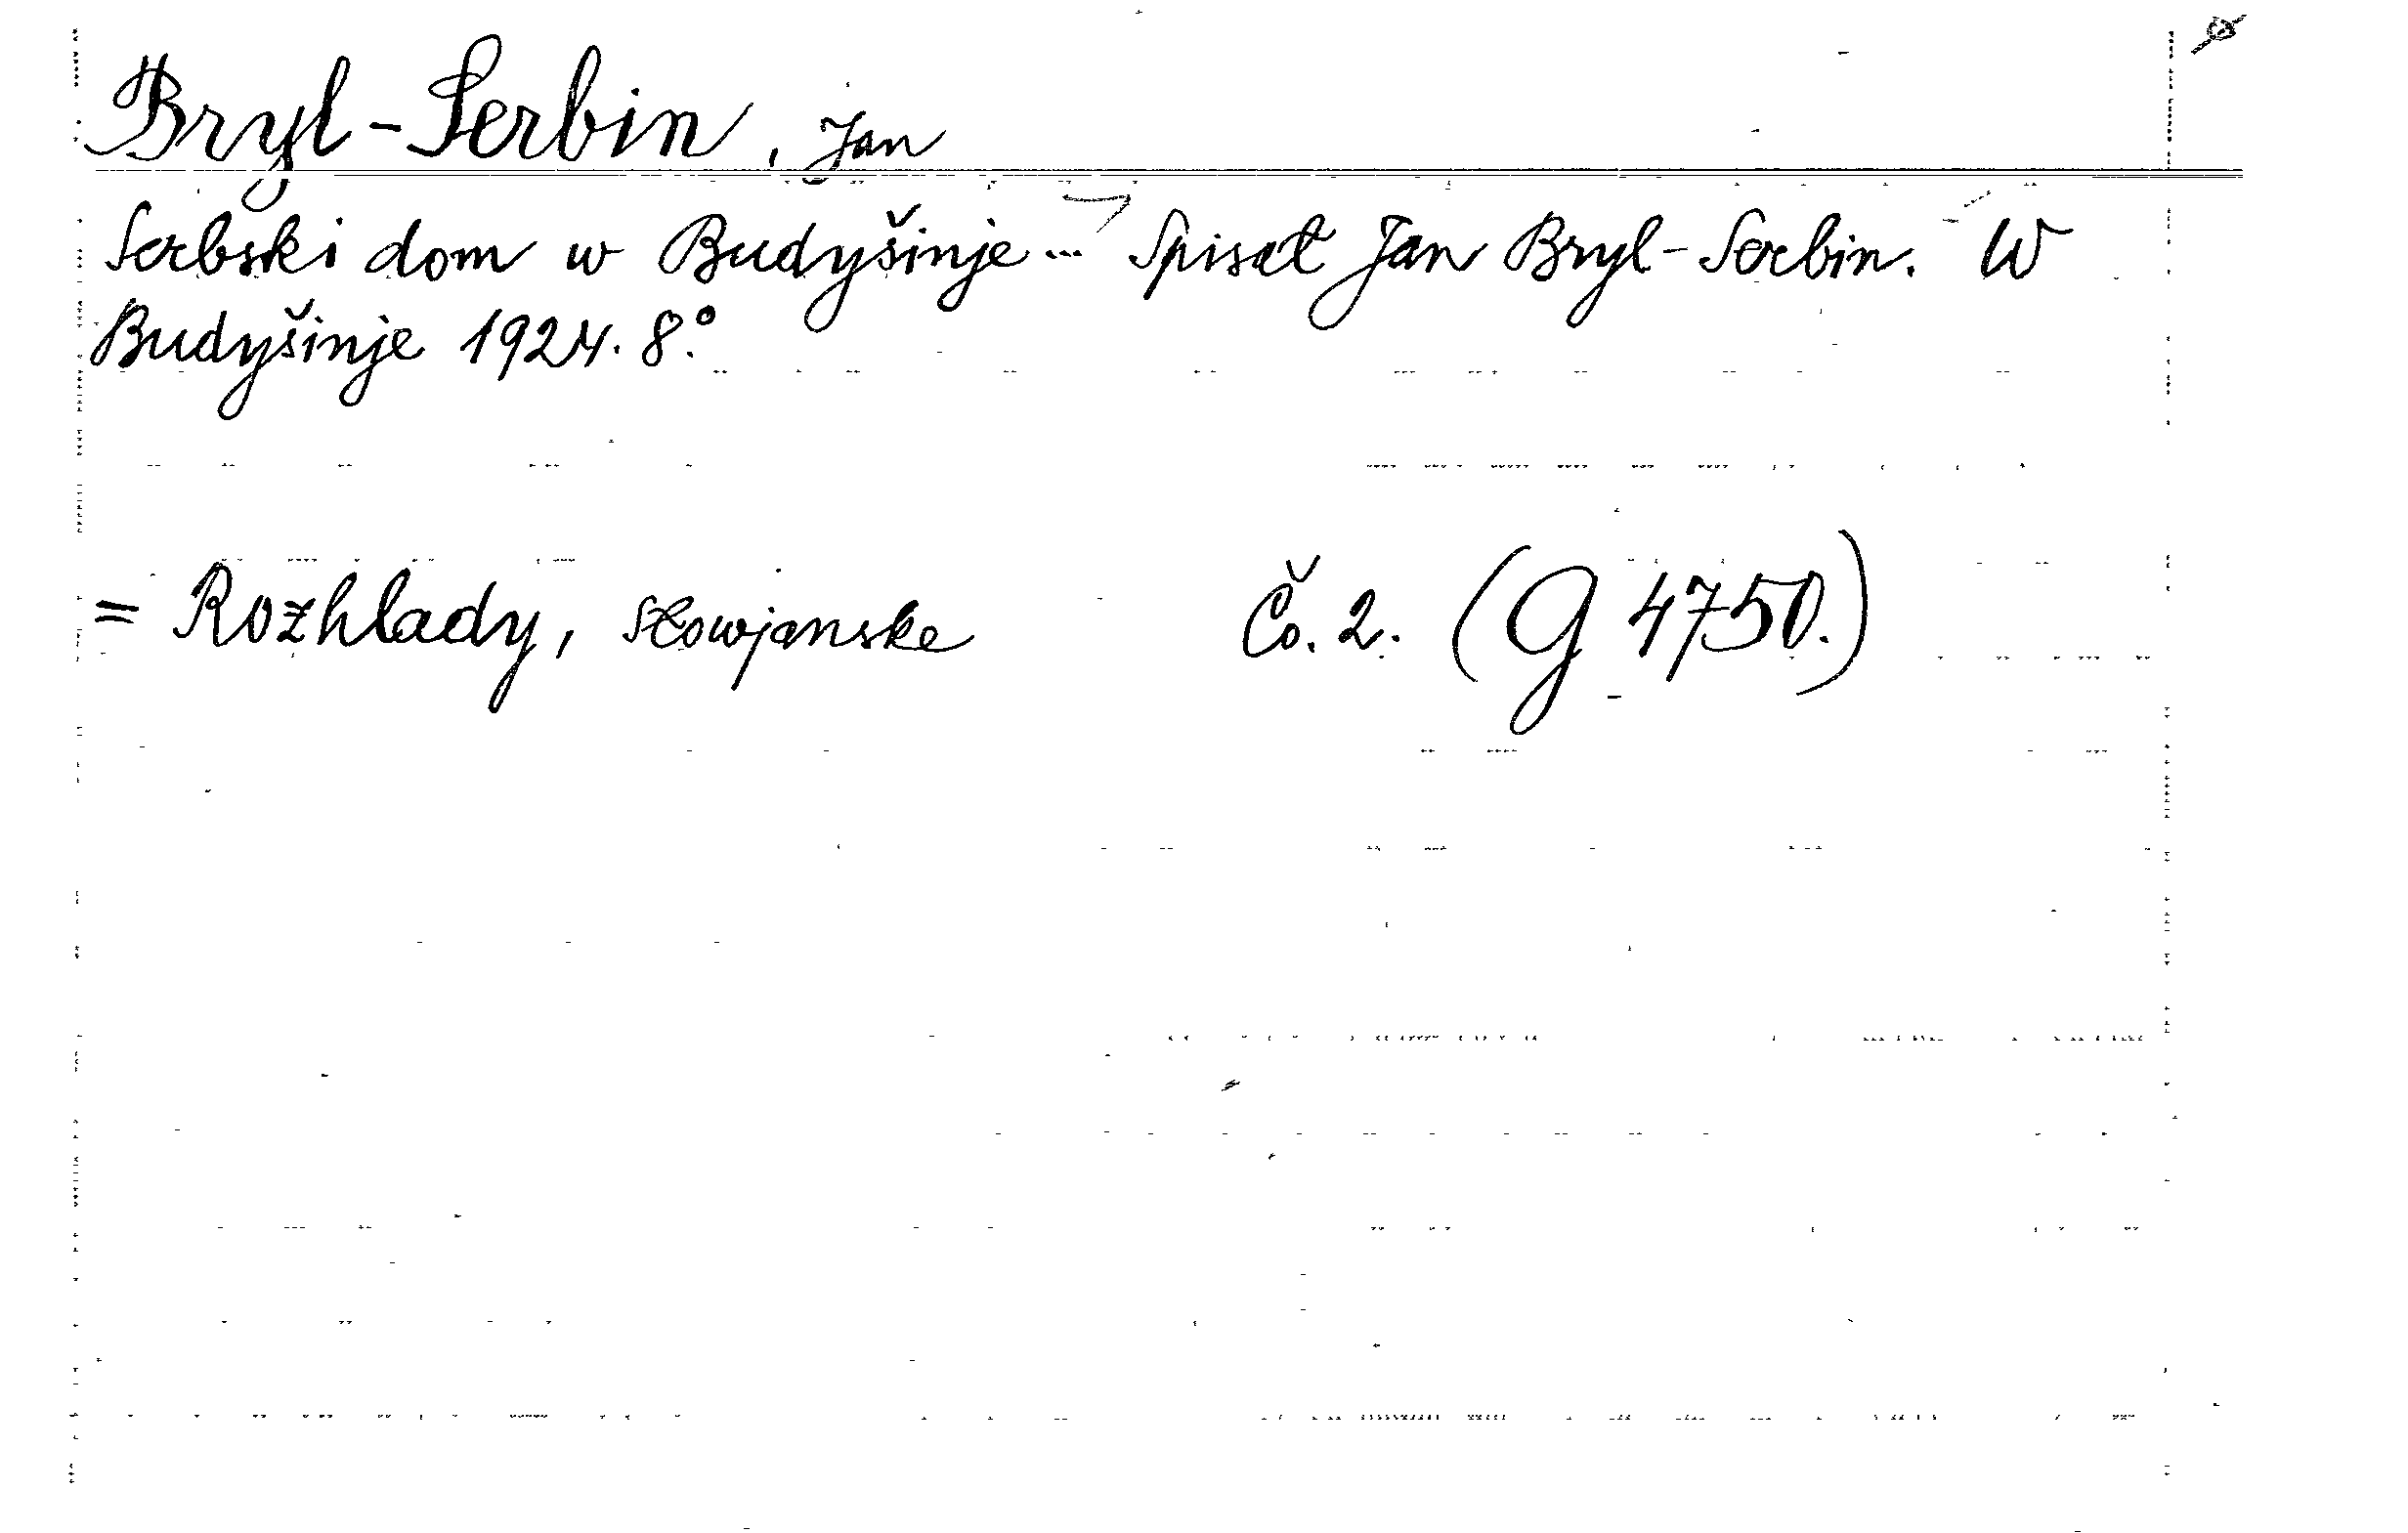 Bryl-Serbin, Jan
Serbski dom w Budyšinje... Spisał Jan Bryl-Serbin. W
Budyšinje 1924. 8°.
= Rozhlady, słowjanske Čo. 2. (G 4750.)